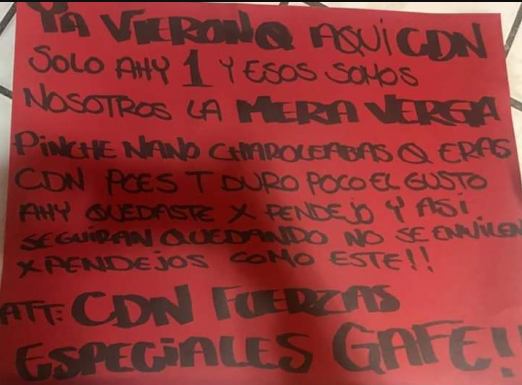 YA VIERON Q AQUÍ CDN
SOLO AHY 1 Y ESOS SOMOS
NOSOTROS LA MERA VERGA
PINCHE NANO CHAPOLEABAS Q ERAS
CDN POES T DURO POCO EL GUSTO
AHY QUEDASTE X PENDEJO Y ASÍ
SEGUIRAN QUEDANDO NO SE ENVILEN
X PENDEJOS COMO ESTE!!
ATT: CDN FUERZAS
ESPECIALES GAFE!